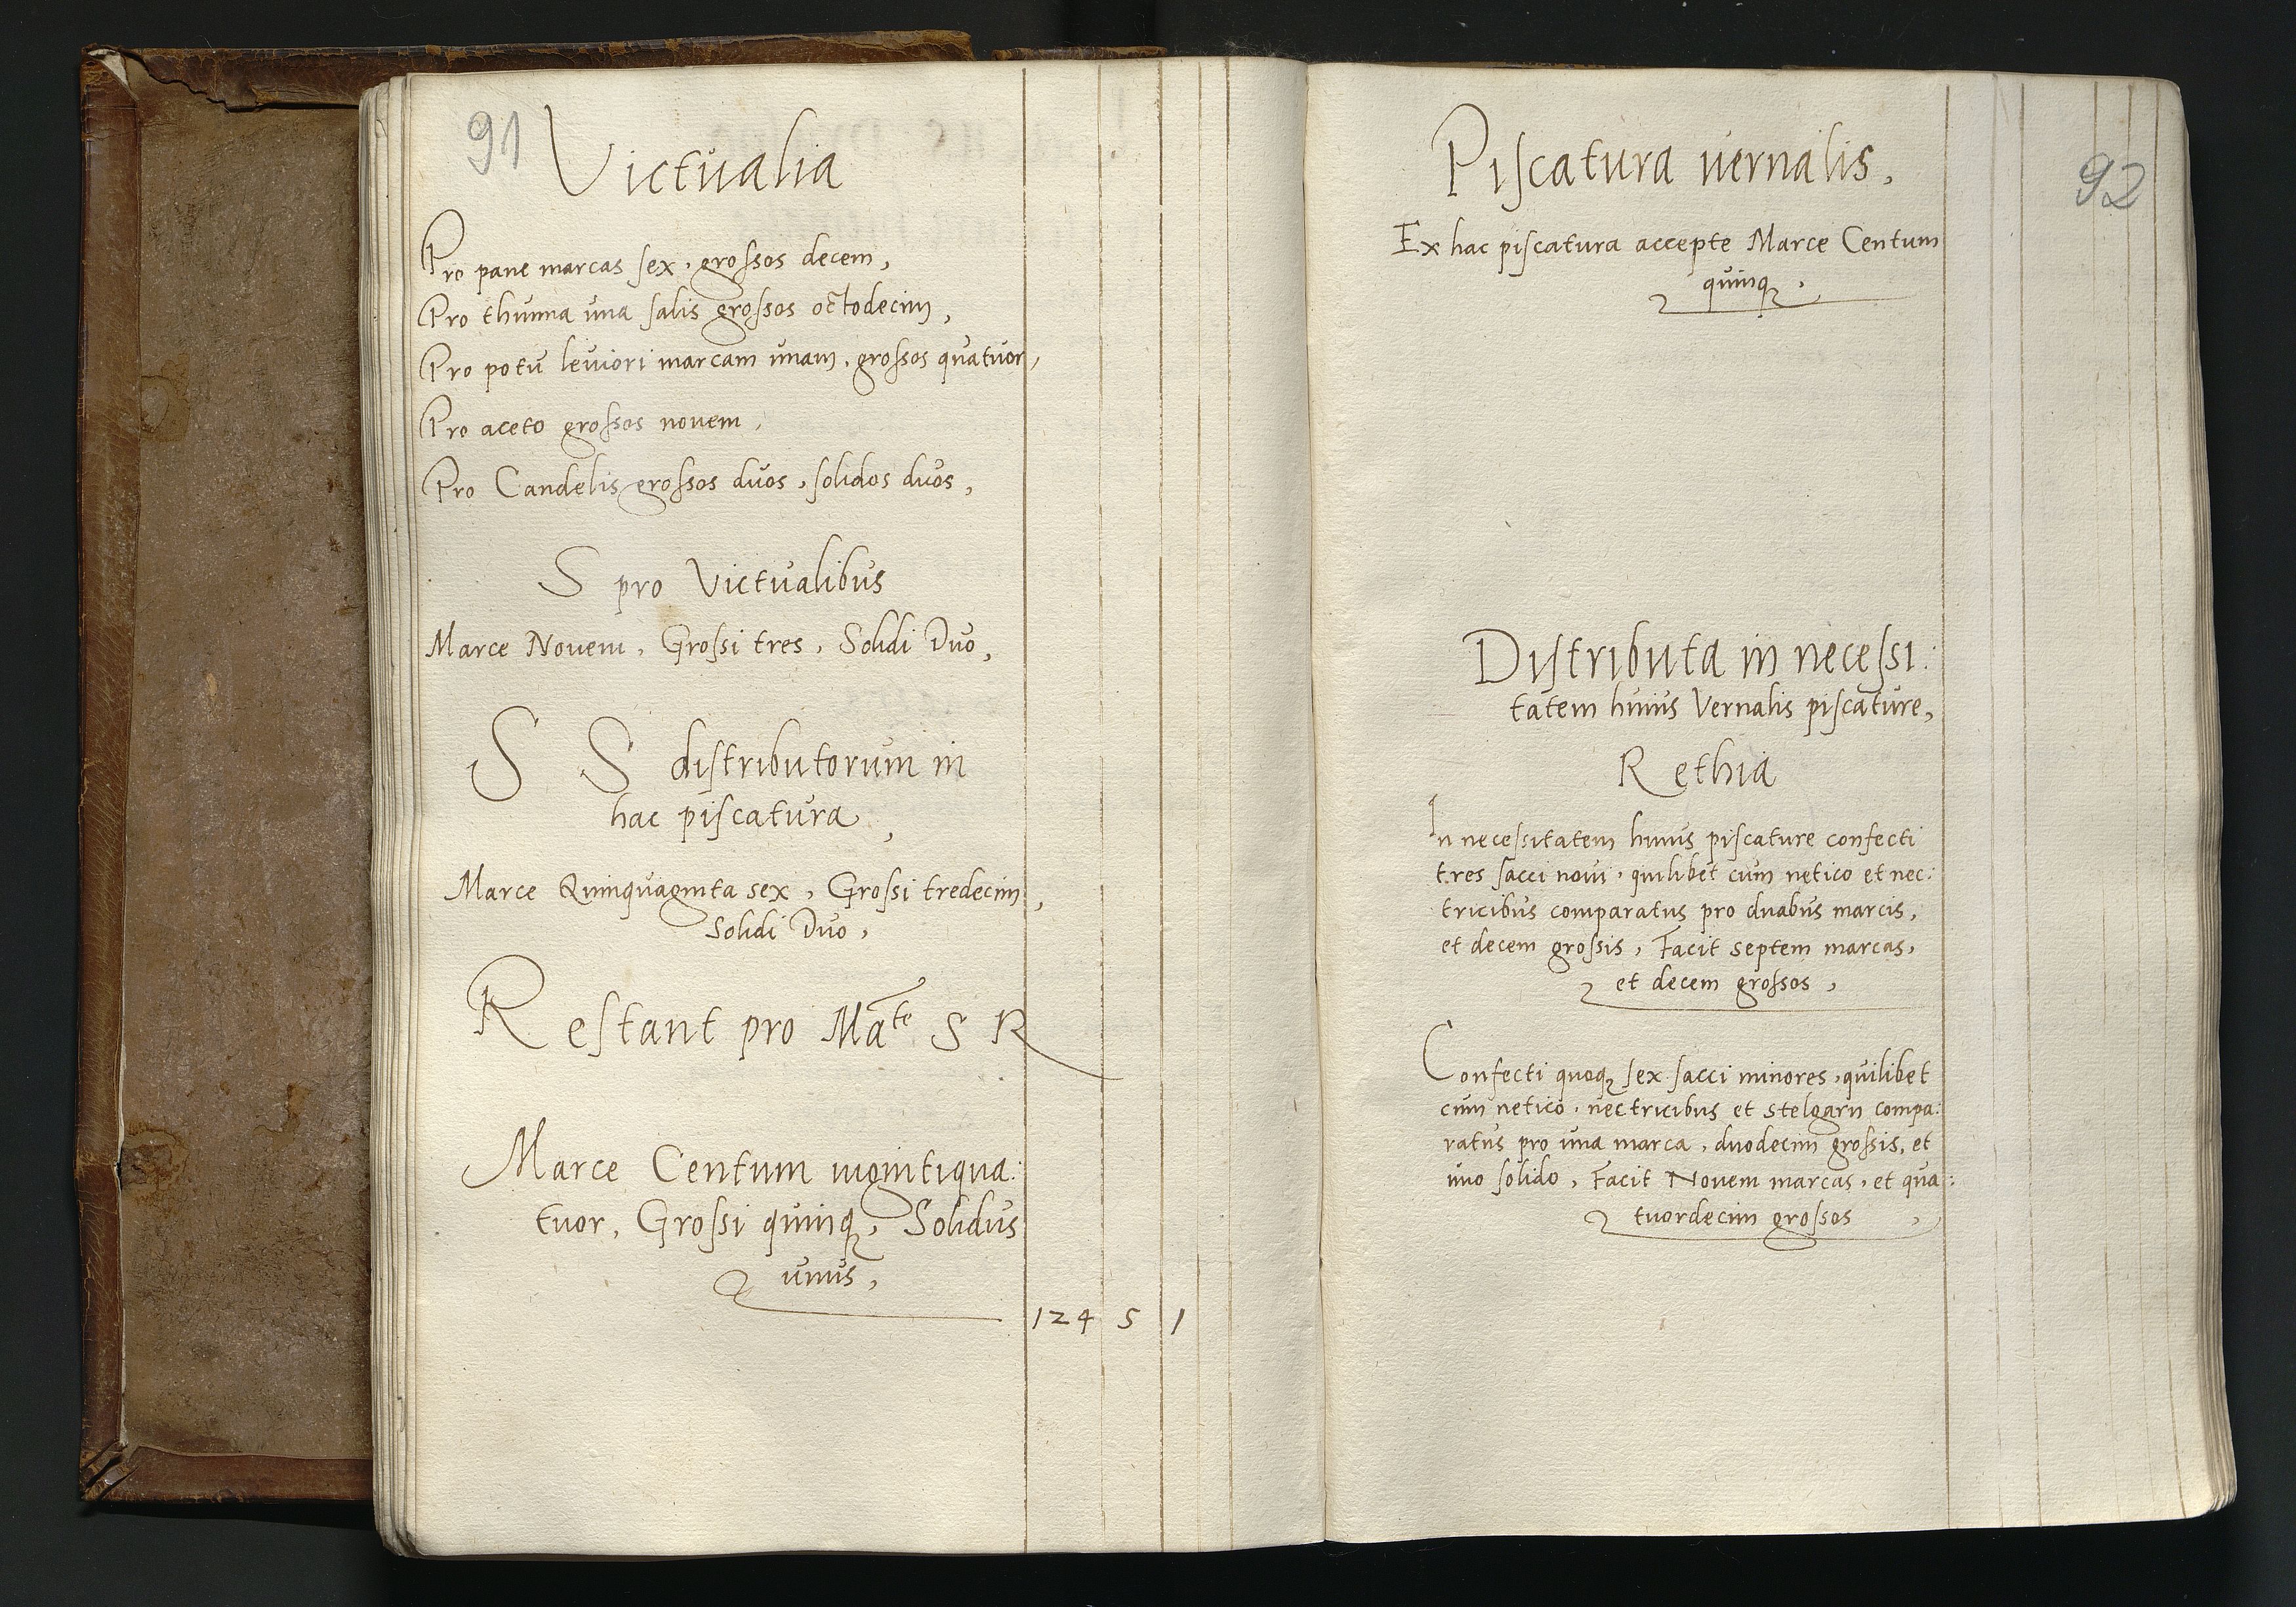 91
Victualia
Pro pane marcas sex, grossos decem,
Pro thunna una salis grossos octodecim,
Pro potu leuiori marcam unam, grossos quatuor,
Pro aceto grossos nouem,
Pro Candelis grossos duos, solidos duos,
S pro Victualibus
Marce Nouem, Grossi tres, Solidi Duo,
S S distributorum in
hac piscatura,
Marce Quinquaginta sex, Grossi tredecim,
Solidi Duo,
Restant pro Mate S R
Marce Centum uigintiqua:
tuor, Grossi quinq, Solidus
unus,
124 5 1
92
Piscatura uernalis,
Ex hac piscatura accepte Marce Centum
quinq,
Distributa in necessi:
tatem huius Vernalis piscature,
Rethia
In necessitatem huius piscature confecti
tres sacci noui, quilibet cum netico et nec:
tricibus comparatus pro duabus marcis,
et decem grossis, Facit septem marcas,
et decem grossos,
Confecti quoq sex sacci minores, quilibet
cum netico, nectricibus et stelgarn compa:
ratus pro una marca, duodecim grossis, et
uno solido, Facit Nouem marcas, et qua:
tuordecim grossos,